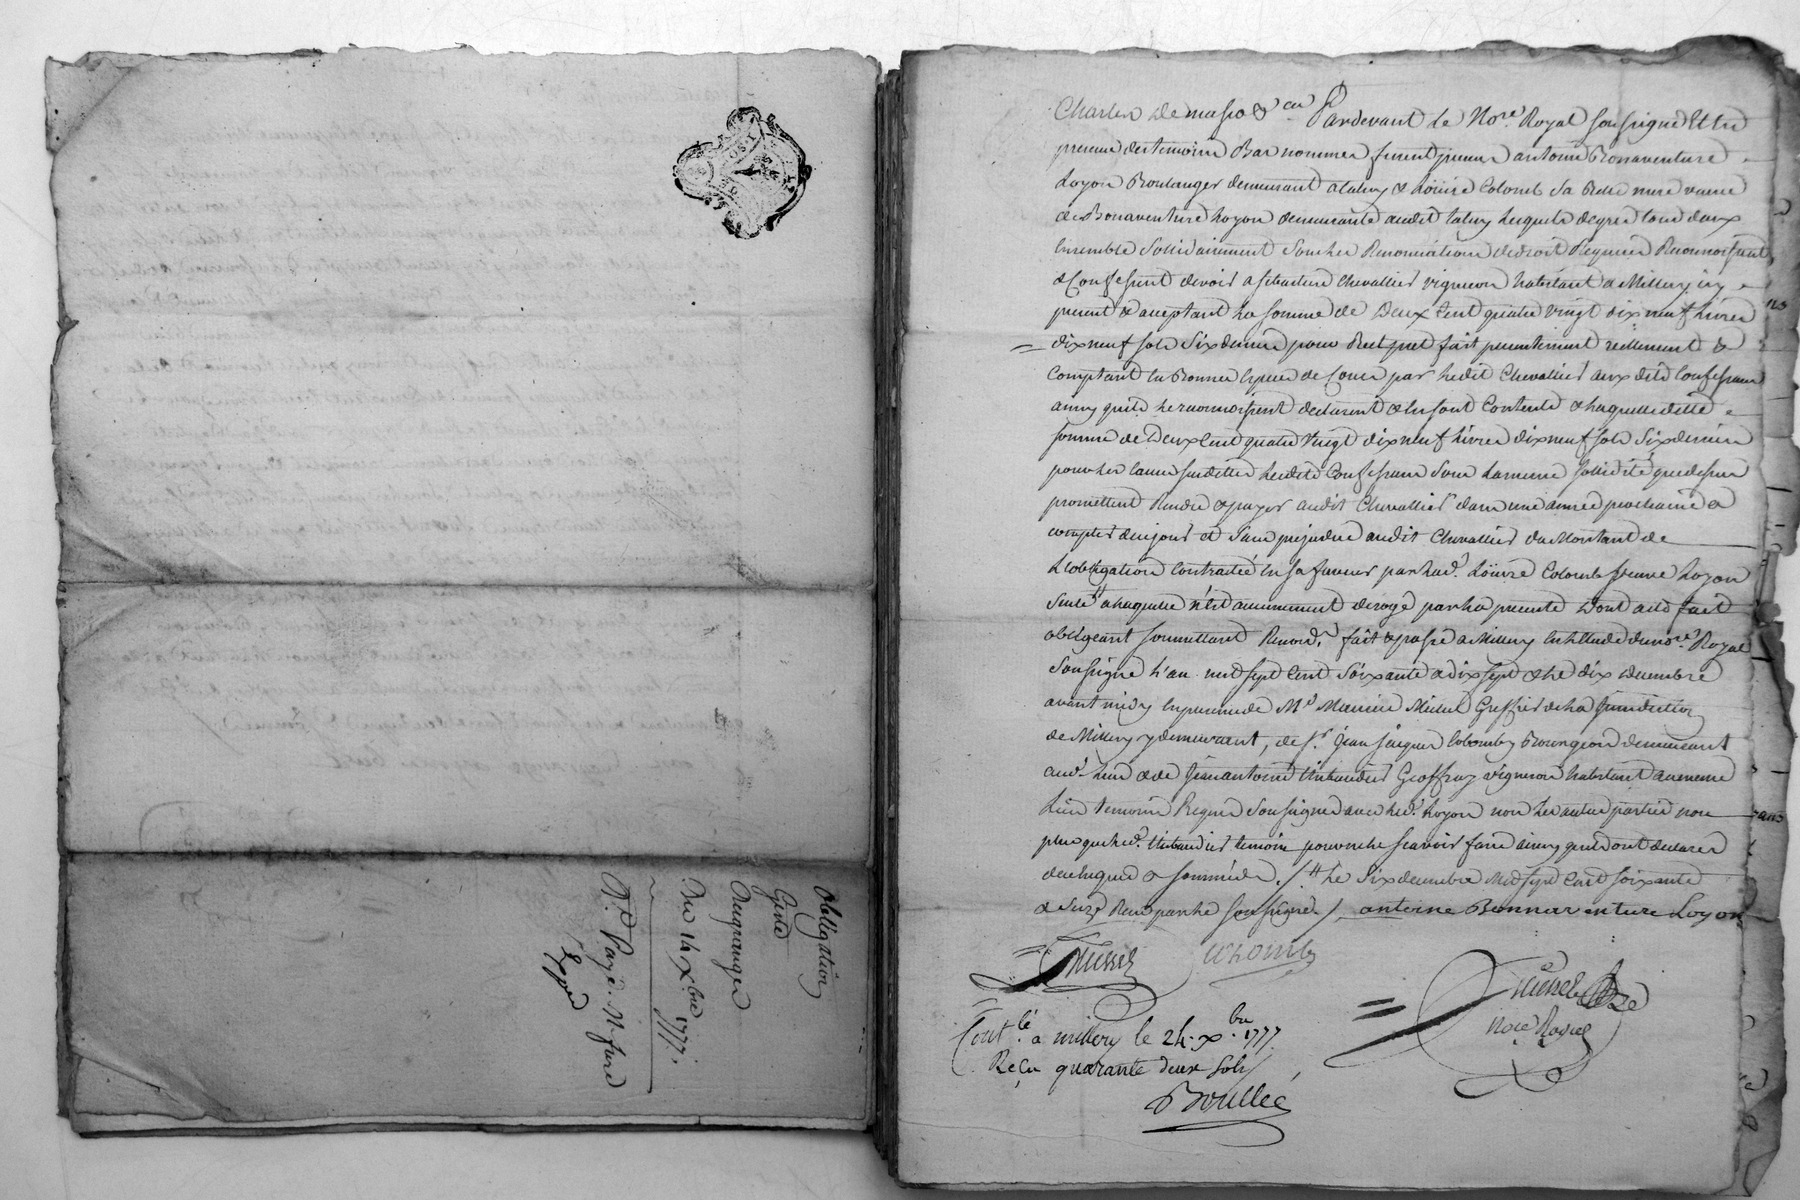 obligation
Gene
Du 14 xbre 1777.
Charles de masso & ca Pardevant le Nore. Royal soussigné et en
presence des temoins Bas nommés furent presens antoine Bonnaventure
Loyon Boulanger demeurant a taluy & Loüise Colomb sa Belle mere veuve
de Bonaventure Loyon demeurante audit taluy lesquels de gré tous deux
Ensemble sollidairement sous les Renonciations de droit Requises Reconnoissent
& Confessent devoir a sebastien Chevallier vigneron habitant a Millery icy
present & acceptant la somme de Deux Cent quatre vingt dix neuf livres
dix neuf sols six deniers pour Rest pret fait presentement réellement &
comptant en Bonnes especes de Cours par ledit Chevallier aux dits Confessans
ainsy quils le reconnoissent declarent & en sont Contents & laquelle ditte
somme de Deux Cent quatre vingt dix neuf livres dix neuf sols six deniers
pour les causes susdittes lesdits Confessans sous la meme sollidité que dessus
promettent Rendre & payer audit Chevallier dans une année prochaine a
compter de ce jour et sans prejudice audit Chevallier du Montant de
L'obligation Contractée en sa faveur par lad. Loüise Colomb veuve Loyon
seule a laquelle n'est aucunement derogé par la presente Dont acte fait
obligeant soumettant Renonçt. fait & passé a Millery en l'Etude dud nore. Royal
soussigné L'an mil sept Cent soixante & dix sept & le dix decembre
avant midy en presence de Me Maurice Michel Greffier de la Jurisdiction
de Millery y demeurant, de sr. Jean Jacques Colomb Bourgeois demeurant
aud. lieu & de Jean antoine thibaudier Geoffray vigneron habitant au meme
Lieu temoins Requis soussignés avec led. Loyon non les autres parties non
plus que led. thibaudier temoin pour ne le scavoir faire ainsy qu'ils ont declaré
de ce Enquis & sommés. /. le six decembre Mil sept Cent soixante
& seize Reçu par le soussigné / antoine Bonnaventure Loyon
Michel Colomb
Nore Royal
Contlé. a millery le 24. xbre. 1777
Reçu quarante deux sols
Boullée